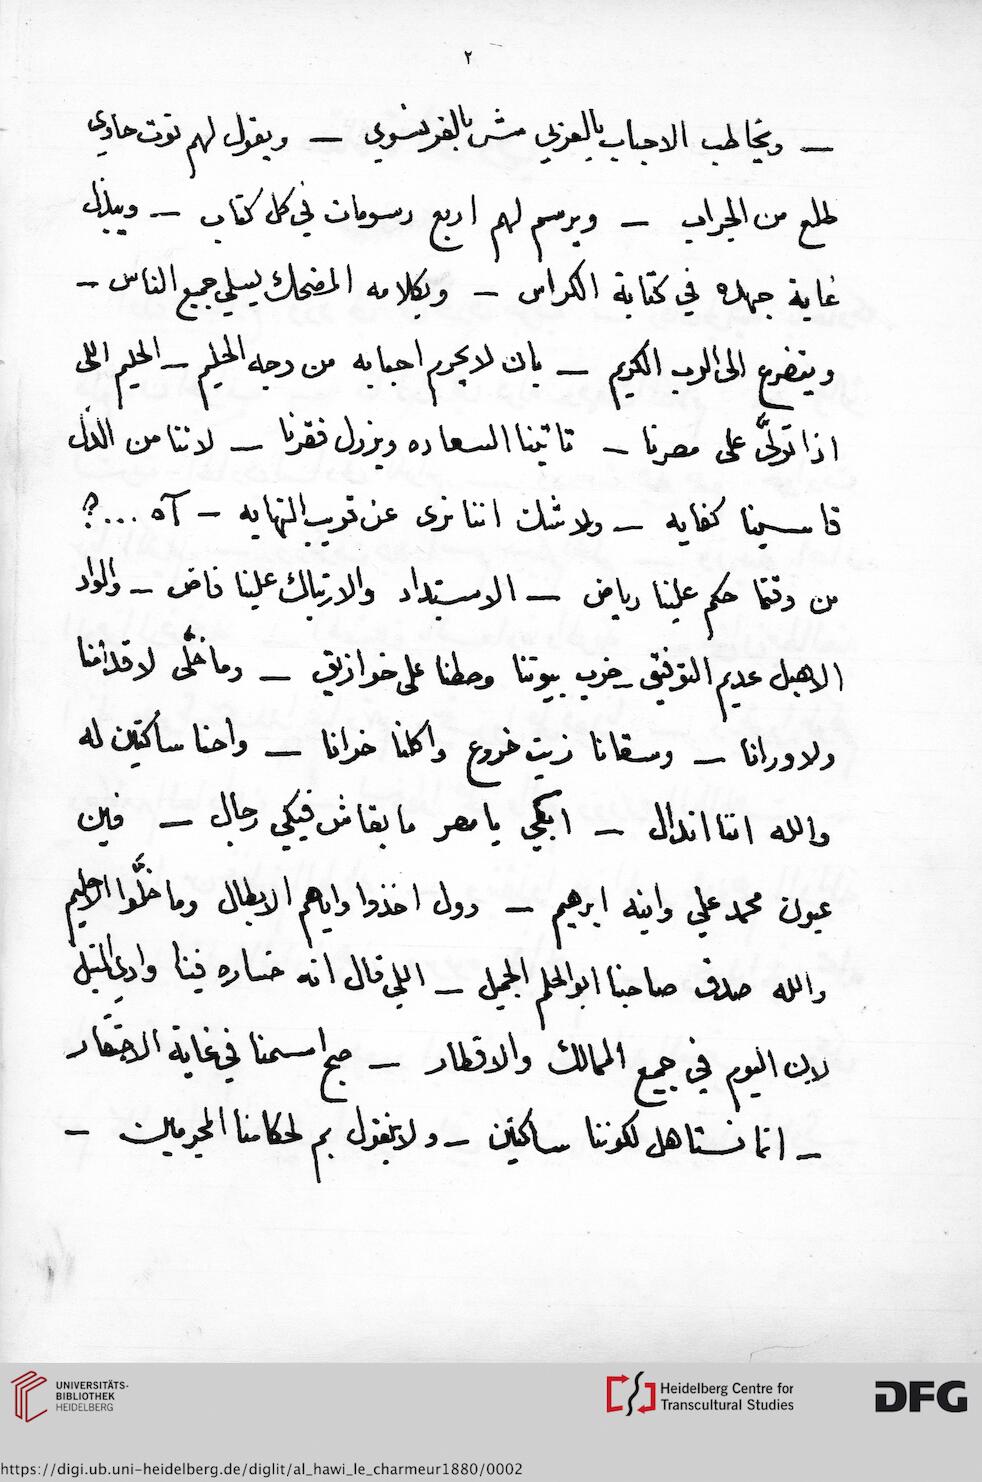 ٢
— ويخاطب الاحباب بالعربي مش بالفرنسوي — ويقول لهم توت حاوي
طلع من الجراب — ويرسم لهم اربع رسومات في كل كتاب — ويبذل
غاية جهده في كتابة الكراس — وبكلامه المضحك يسلي جميع الناس —
ويتضرع الى الرب الكريم — بان لا يحرم احبابه من وجه الحليم — الحليم اللي
اذا تولَّى على مصرنا — تاتينا السعاده ويزول فقرنا — لاننا من الذل
قاسينا كفايه — ولا شك اننا نرى عن قريب النهايه — آه ...؟
من وقتما حكم علينا رياض — الاستبداد والارتباك علينا فاض — والواد
الاهبل عديم التوفيق — خرب بيوتنا وحطنا على خوازيق — وما خلَّى لا قدامنا
ولا ورانا — وسقانا زيت خروع واكلنا خرانا — واحنا ساكتين له
والله اننا اندال — ابكي يا مصر ما بقاش فيكي رجال — فين
عيون محمد علي وابنه ابرهيم — دول اخذوا وياهم الابطال وما خلَّوا الا حليم
والله صدق صاحبنا ابو الحلم الجميل — اللي قال انه خساره فينا وادي النيل
لان اليوم في جميع الممالك والاقطار — صبح اسمنا في غاية الاحتقار
— انما نستاهل لكوننا ساكتين — ولا بنقول بم لحكامنا المجرمين —
UNIVERSITÄTS-
BIBLIOTHEK
HEIDELBERG
Heidelberg Centre for
Transcultural Studies
DFG
https://digi.ub.uni-heidelberg.de/diglit/al_hawi_le_charmeur1880/0002